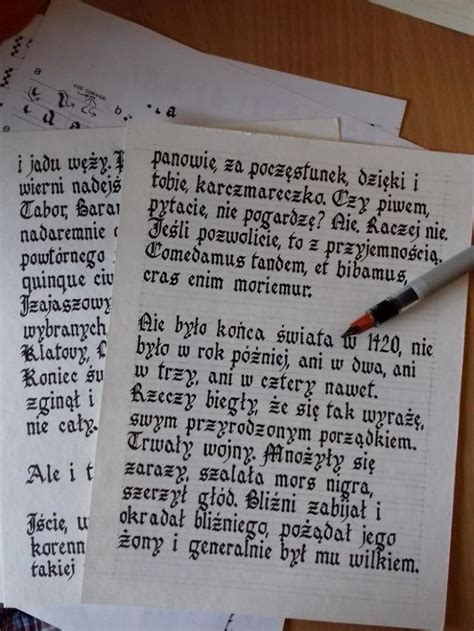 a
VEE CORNER
b
a
i jadu węży.
wierni nadejś
Tabor, Bara
nadaremnie
powtórnego
quinque civ
Izajaszowy
wybranych,
Klatovy,
Koniec św
zginął i
nie cały.
Ale i t
Iście, w
korenn
takiej
panowie, za poczęstunek, dzięki i
tobie, karczmareczko. Czy piwem,
pytacie, nie pogardzę? Nie. Raczej nie.
Jeśli pozwolicie, to z przyjemnością.
Comedamus tandem, et bibamus,
cras enim moriemur.
Nie było końca świata w 1420, nie
było w rok później, ani w dwa, ani
w trzy, ani w cztery nawet.
Rzeczy biegły, że się tak wyrażę,
swym przyrodzonym porządkiem.
Trwały wojny. Mnożyły się
zarazy, szalała mors nigra,
szerzył głód. Bliźni zabijał i
okradał bliźniego, pożądał jego
żony i generalnie był mu wilkiem.